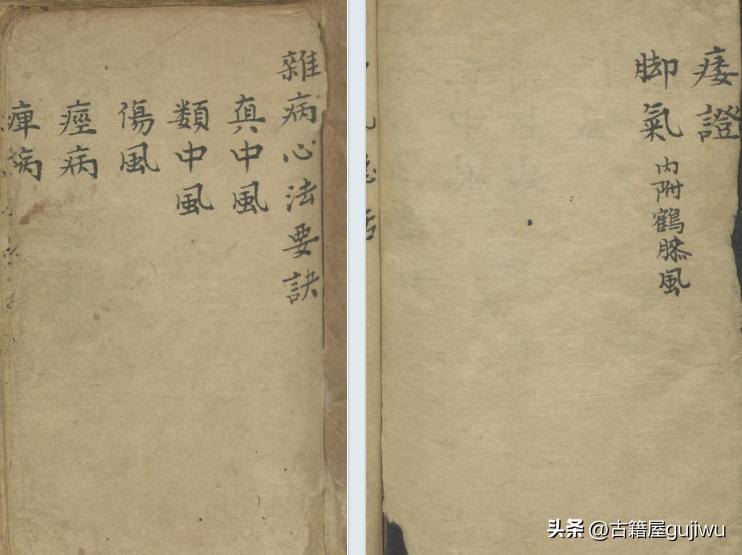 雜病心法要訣
真中風
類中風
傷風
痙病
痺病
痿證
脚氣 内附鶴膝風
头条 @古籍屋gujiwu